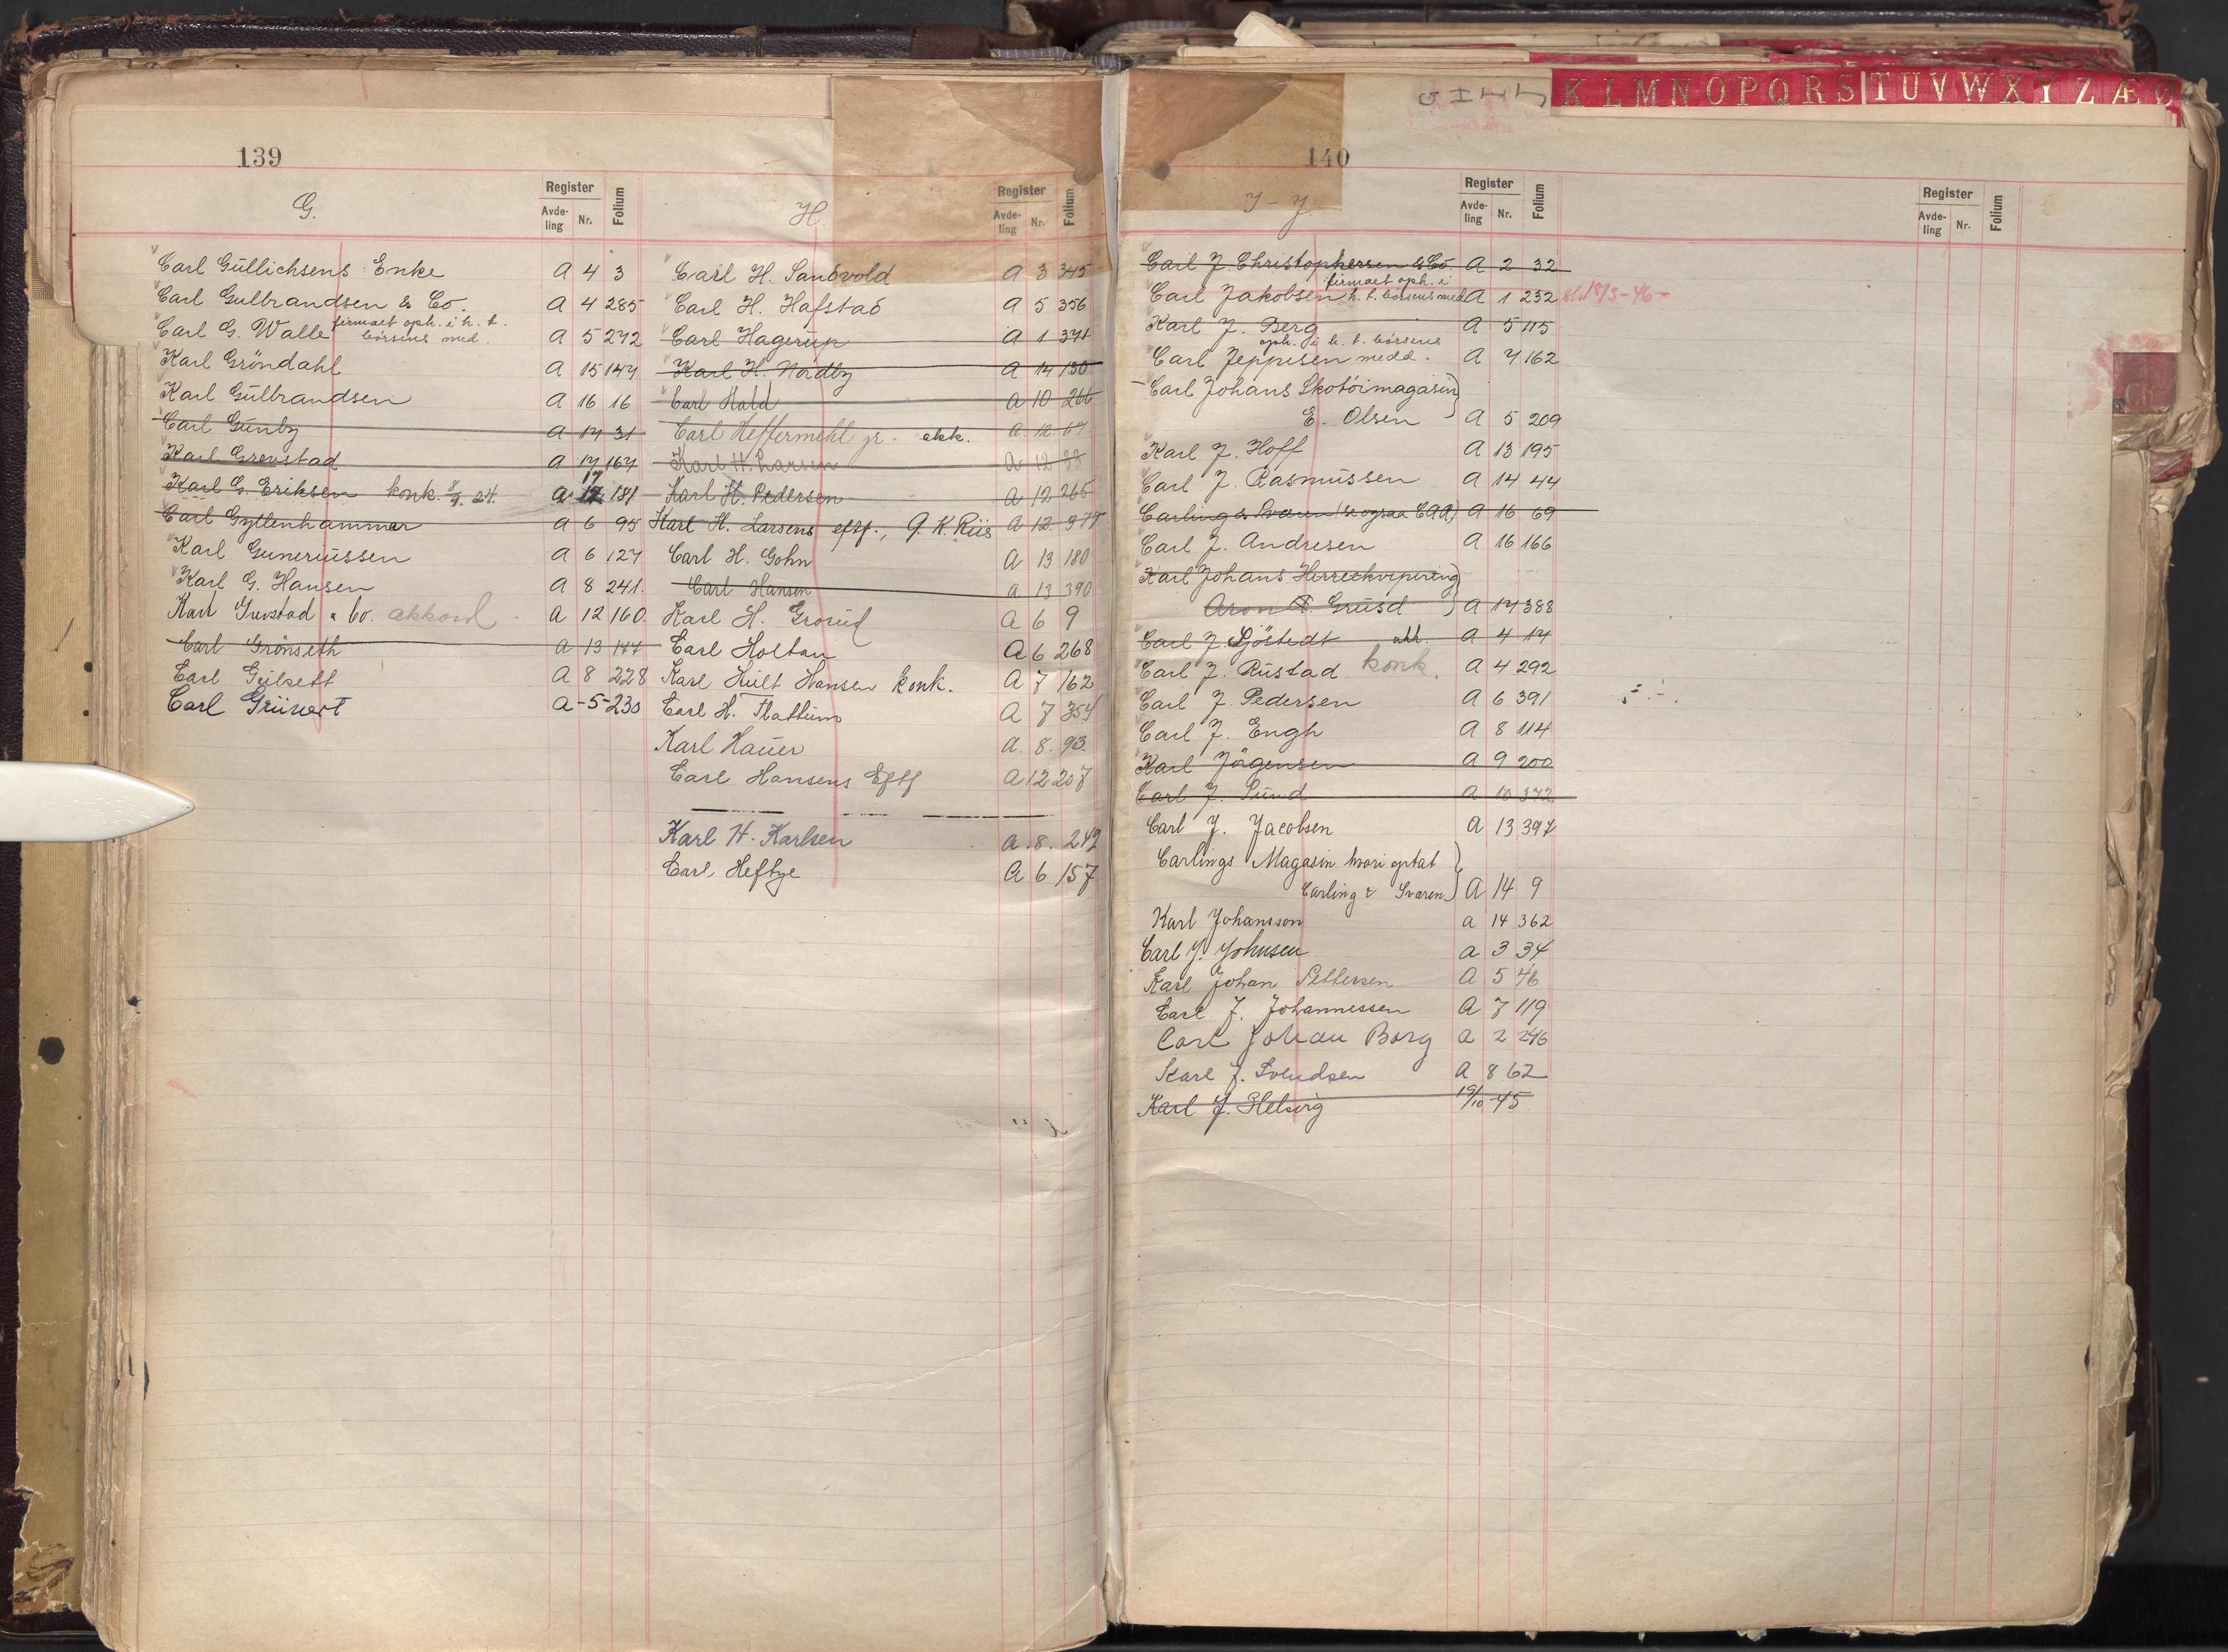 139
G.
Register
Avde-
ling
Nr.
Folium
Carl Güllichsens Enke A 4 3
Carl Gulbrandsen & Co. A 4 285
firmaet oph. i h. t.
Carl G. Walle børsens med. A 5 272
Karl Gröndahl A 15 147
Karl Gülbrandsen A 16 16
Carl Günby A 17 31
Karl Grevstad A 17 167
Karl G. Eriksen konk. 8/9. 24. A 17 181
Carl Gyllenhammar A 6 95
Karl Guneriussen A 6 127
Karl G. Hansen A 8 241.
Karl Grevstad & Co. akkord A 12 160.
Carl Grönseth A 13 144
Carl Gulsett A 8 228
Carl Grünert A-5-230
H.
Register
Avde-
ling
Nr.
Folium
Carl H. Sandvold A 3 345
Carl H. Hafstad A 5 356
Carl Hagerüp A 1 371
Karl H. Nordby A 14 130
Carl Hald A 10 266
Carl Heffermehl jr. akk. A. 12. 67
Karl H. Larsen A 12 88
Karl H. Pedersen A 12 265
Karl H. Larsens eftf., G. K. Riis A 12. 377
Carl H. Gohn A 13 180
Carl Hanson A 13 390
Karl H. Grorud A 6 9
Carl Holtan A 6 268
Karl Hult Hansen konk. A 7 162
Carl H. Flattum A 7 354
Karl Hauer A. 8. 93.
Carl Hansens Eftf A 12 207
Karl H. Karlsen A. 8. 249
Carl Heftye A 6 157
140
I - J
G H I J K L M N O P Q R S T U V W X Y Z Æ Ø
Register
Avde-
ling
Nr.
Folium
Register
Avde-
ling
Nr.
Folium
Carl J. Christophersen & Co. A 2 32
firmaet oph. i
Carl Jakobsen h. t. børsens med A 1 232 sl. 18/3-46-
Karl J. Berg A 5 115
oph. i h. t. børsens
Carl Jeppesen medd. A 7 162
Carl Johans Skotöimagasin
E. Olsen A 5 209
Karl J. Hoff A 13 195
Carl J. Rasmüssen A 14 44
Carling & Svaren (se ogsaa C A A) A 16 69
Carl J. Andresen A 16 166
Karl Johans Herreekvipering
Aron D. Grusd A 17 388
Carl J. Sjöstedt akk. A 4 14
Carl J. Rüstad konk. A 4 292
Carl J. Pedersen A 6 391
Carl J. Engh A 8 114
Karl Jörgensen A 9 200
Carl J. Sund A 10 372
Carl J. Jacobsen A 13 397
Carlings Magasin hvori optat
Carling & Svaren A 14 9
Karl Johansson A 14 362
Carl J. Johnsen A 3 34
Karl Johan Pettersen A 5 46
Carl J. Johannessen A 7 119
Carl Johan Borg A 2 246
Karl J. Svendsen A 8 62
Karl J. Helsvig 19/10-45